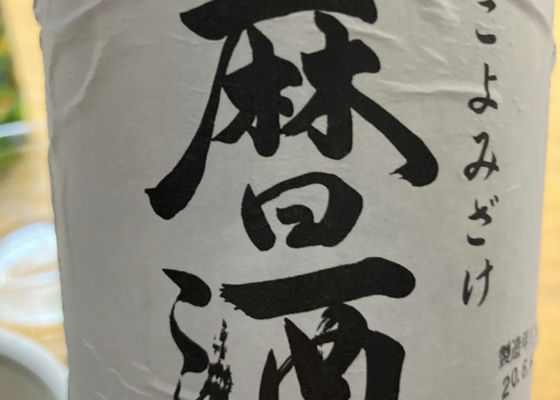 暦酒
こよみざけ
製造年
20.6.